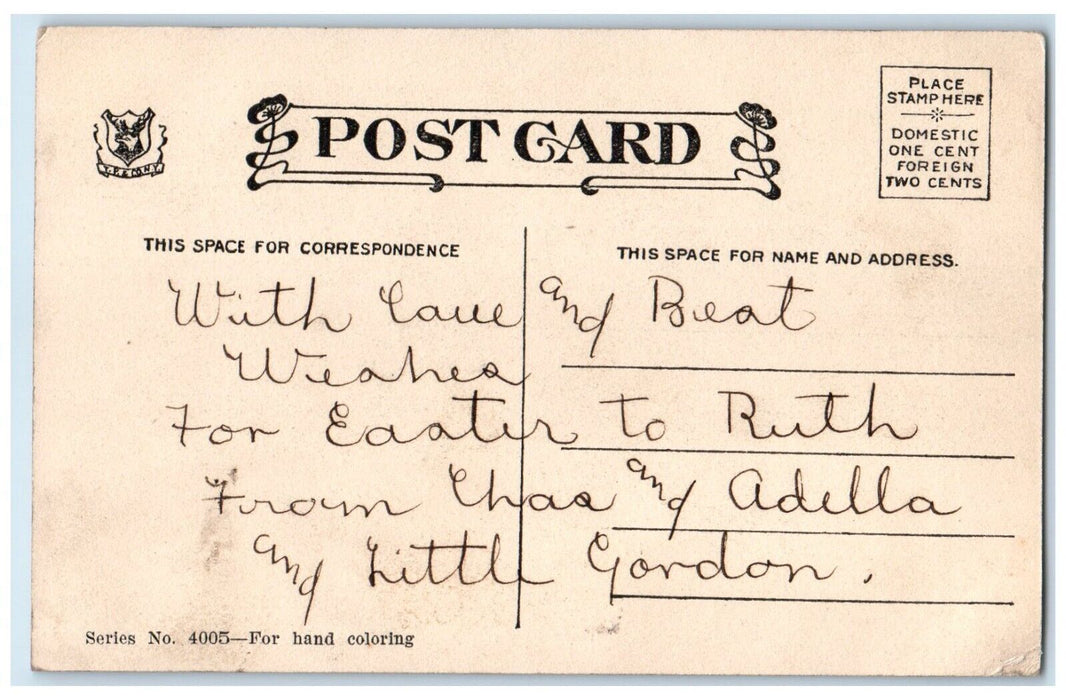 POST CARD
PLACE
STAMP HERE
DOMESTIC
ONE CENT
FOREIGN
TWO CENTS
THIS SPACE FOR CORRESPONDENCE
THIS SPACE FOR NAME AND ADDRESS.
With Love and Best
Weshes
For Easter to Ruth
From Chas and Adella
and Little Gordon.
Series No. 4005—For hand coloring